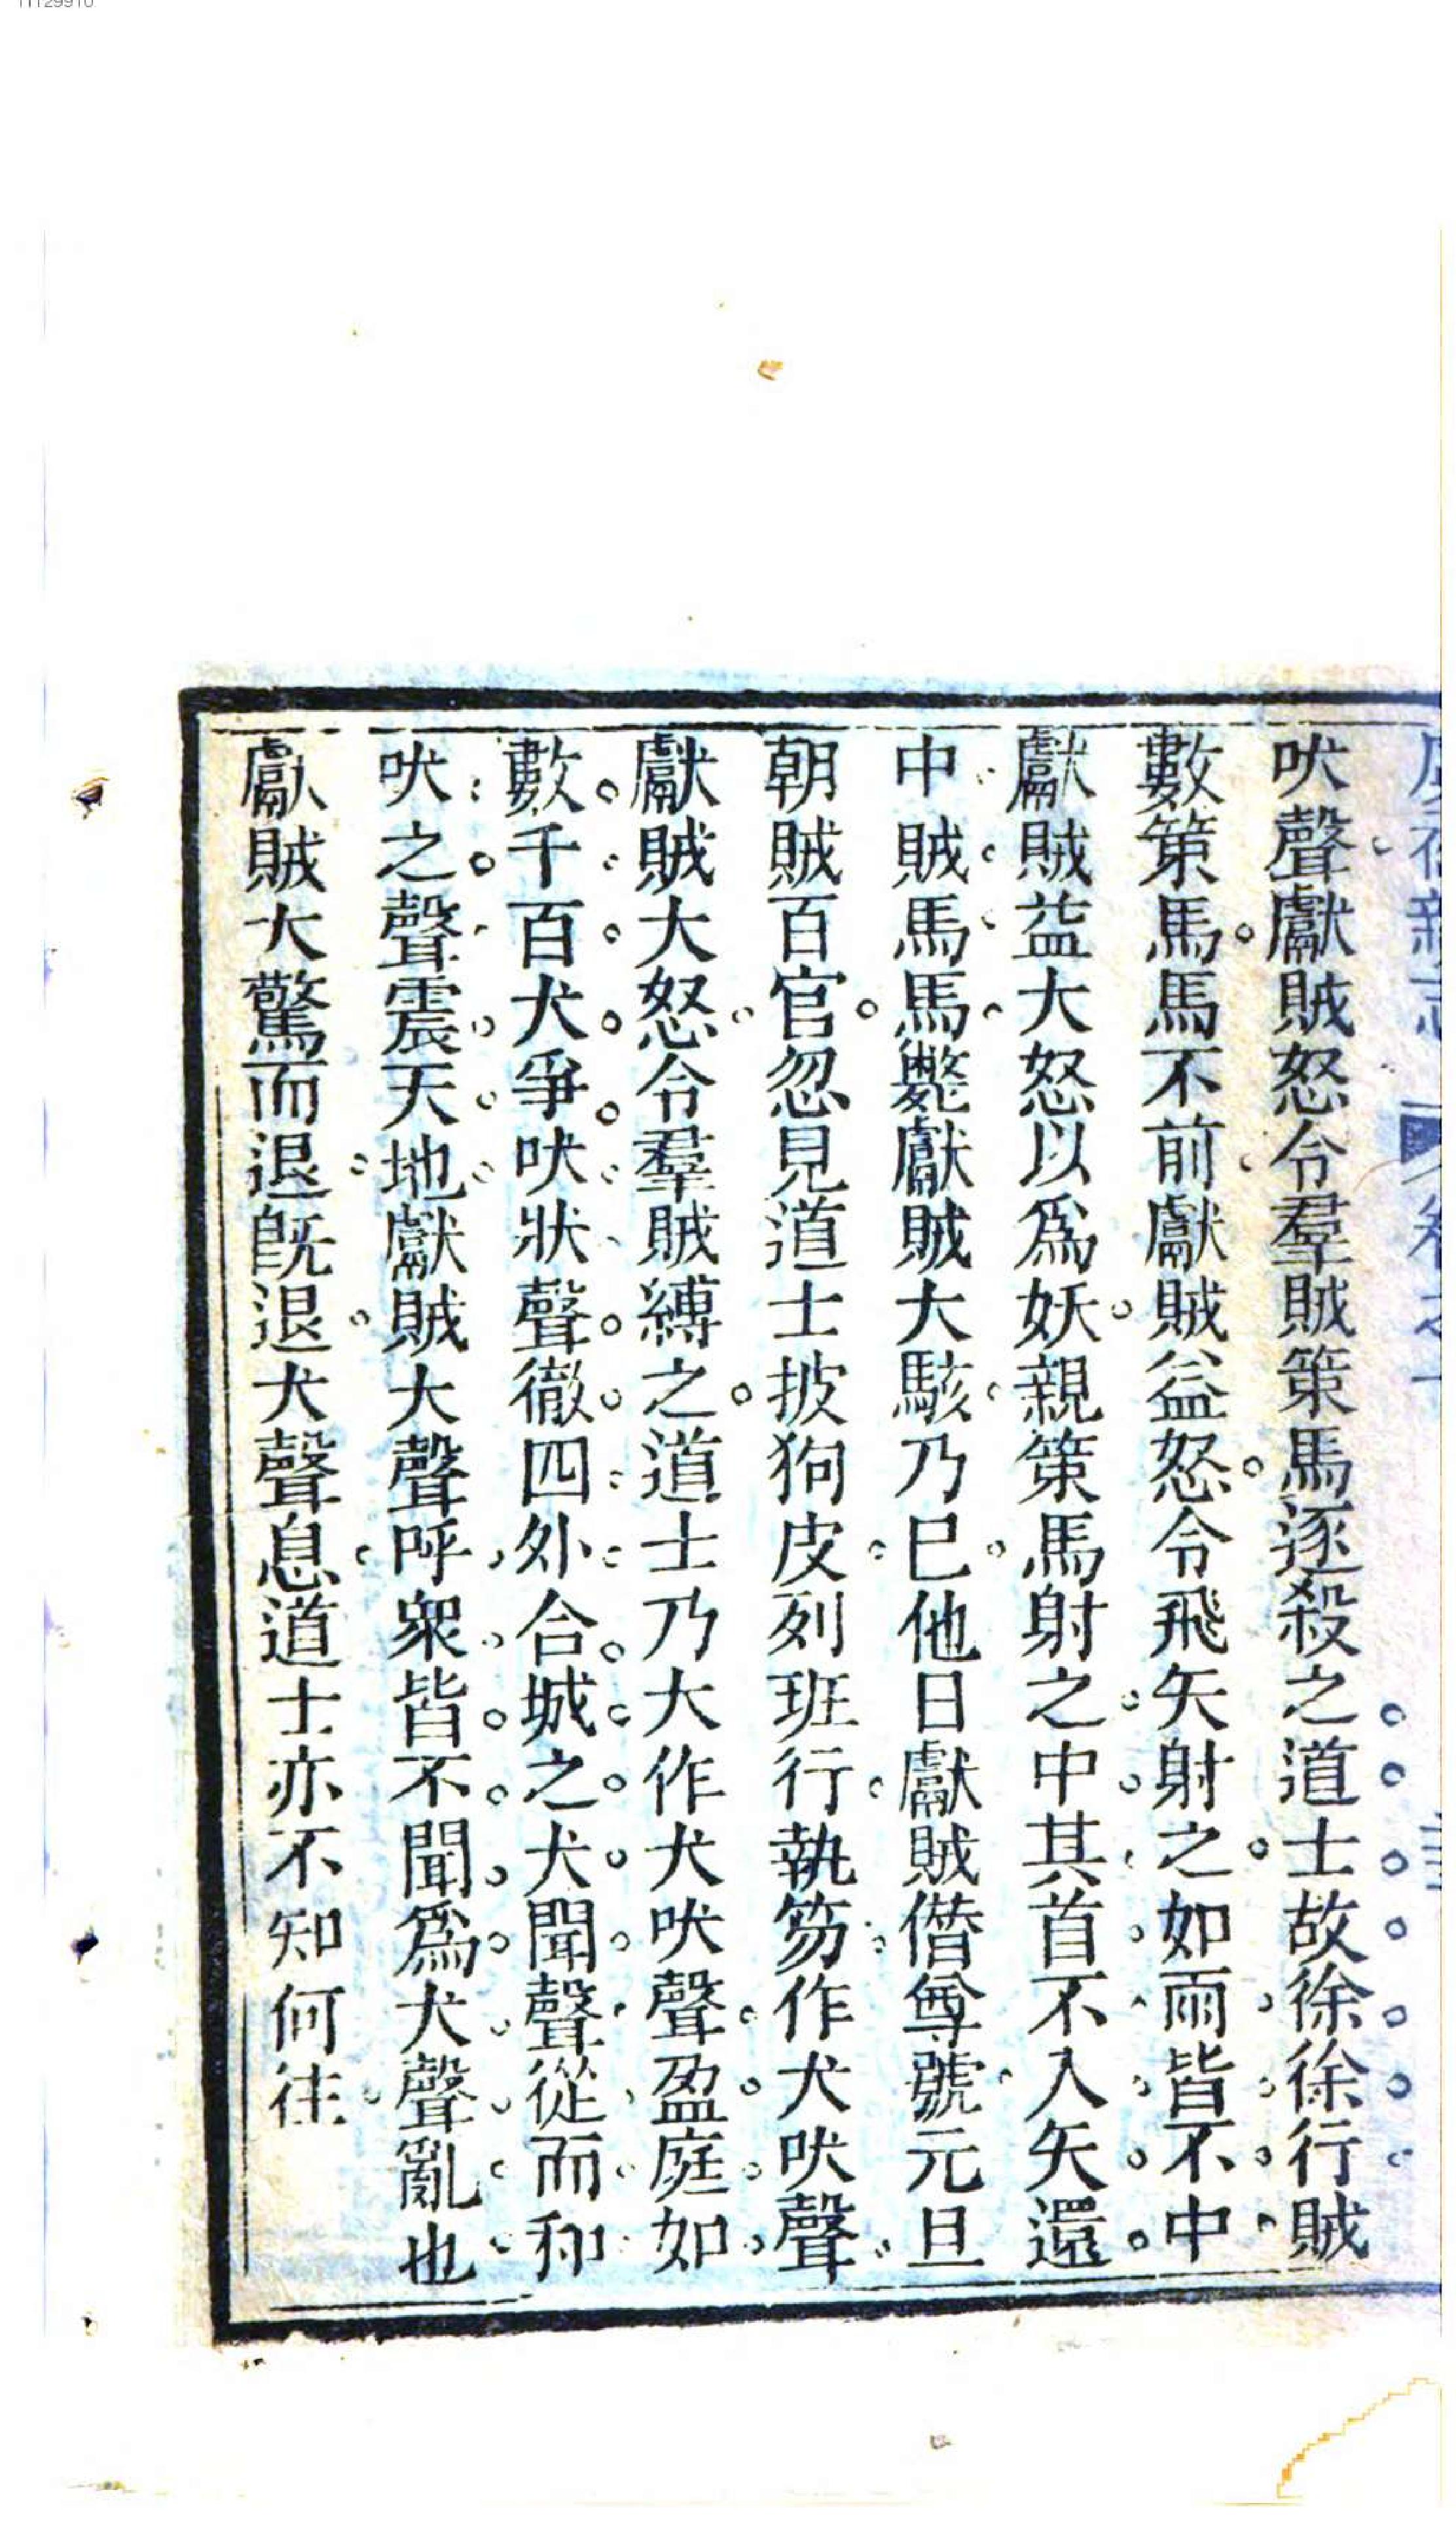 吠聲獻賊怒令羣賊策馬逐殺之道士故徐徐行賊
數策馬馬不前獻賊益怒令飛矢射之如雨皆不中
獻賊益大怒以爲妖親策馬射之中其首不入矢還
中賊馬馬斃獻賊大駭乃巳他日獻賊僭尊號元旦
朝賊百官忽見道士披狗皮列班行執笏作犬吠聲
獻賊大怒令羣賊縛之道士乃大作犬吠聲盈庭如
數千百犬爭吠狀聲徹四外合城之犬聞聲從而和
吠之聲震天地獻賊大聲呼衆皆不聞爲犬聲亂也
獻賊大驚而退旣退犬聲息道士亦不知何往